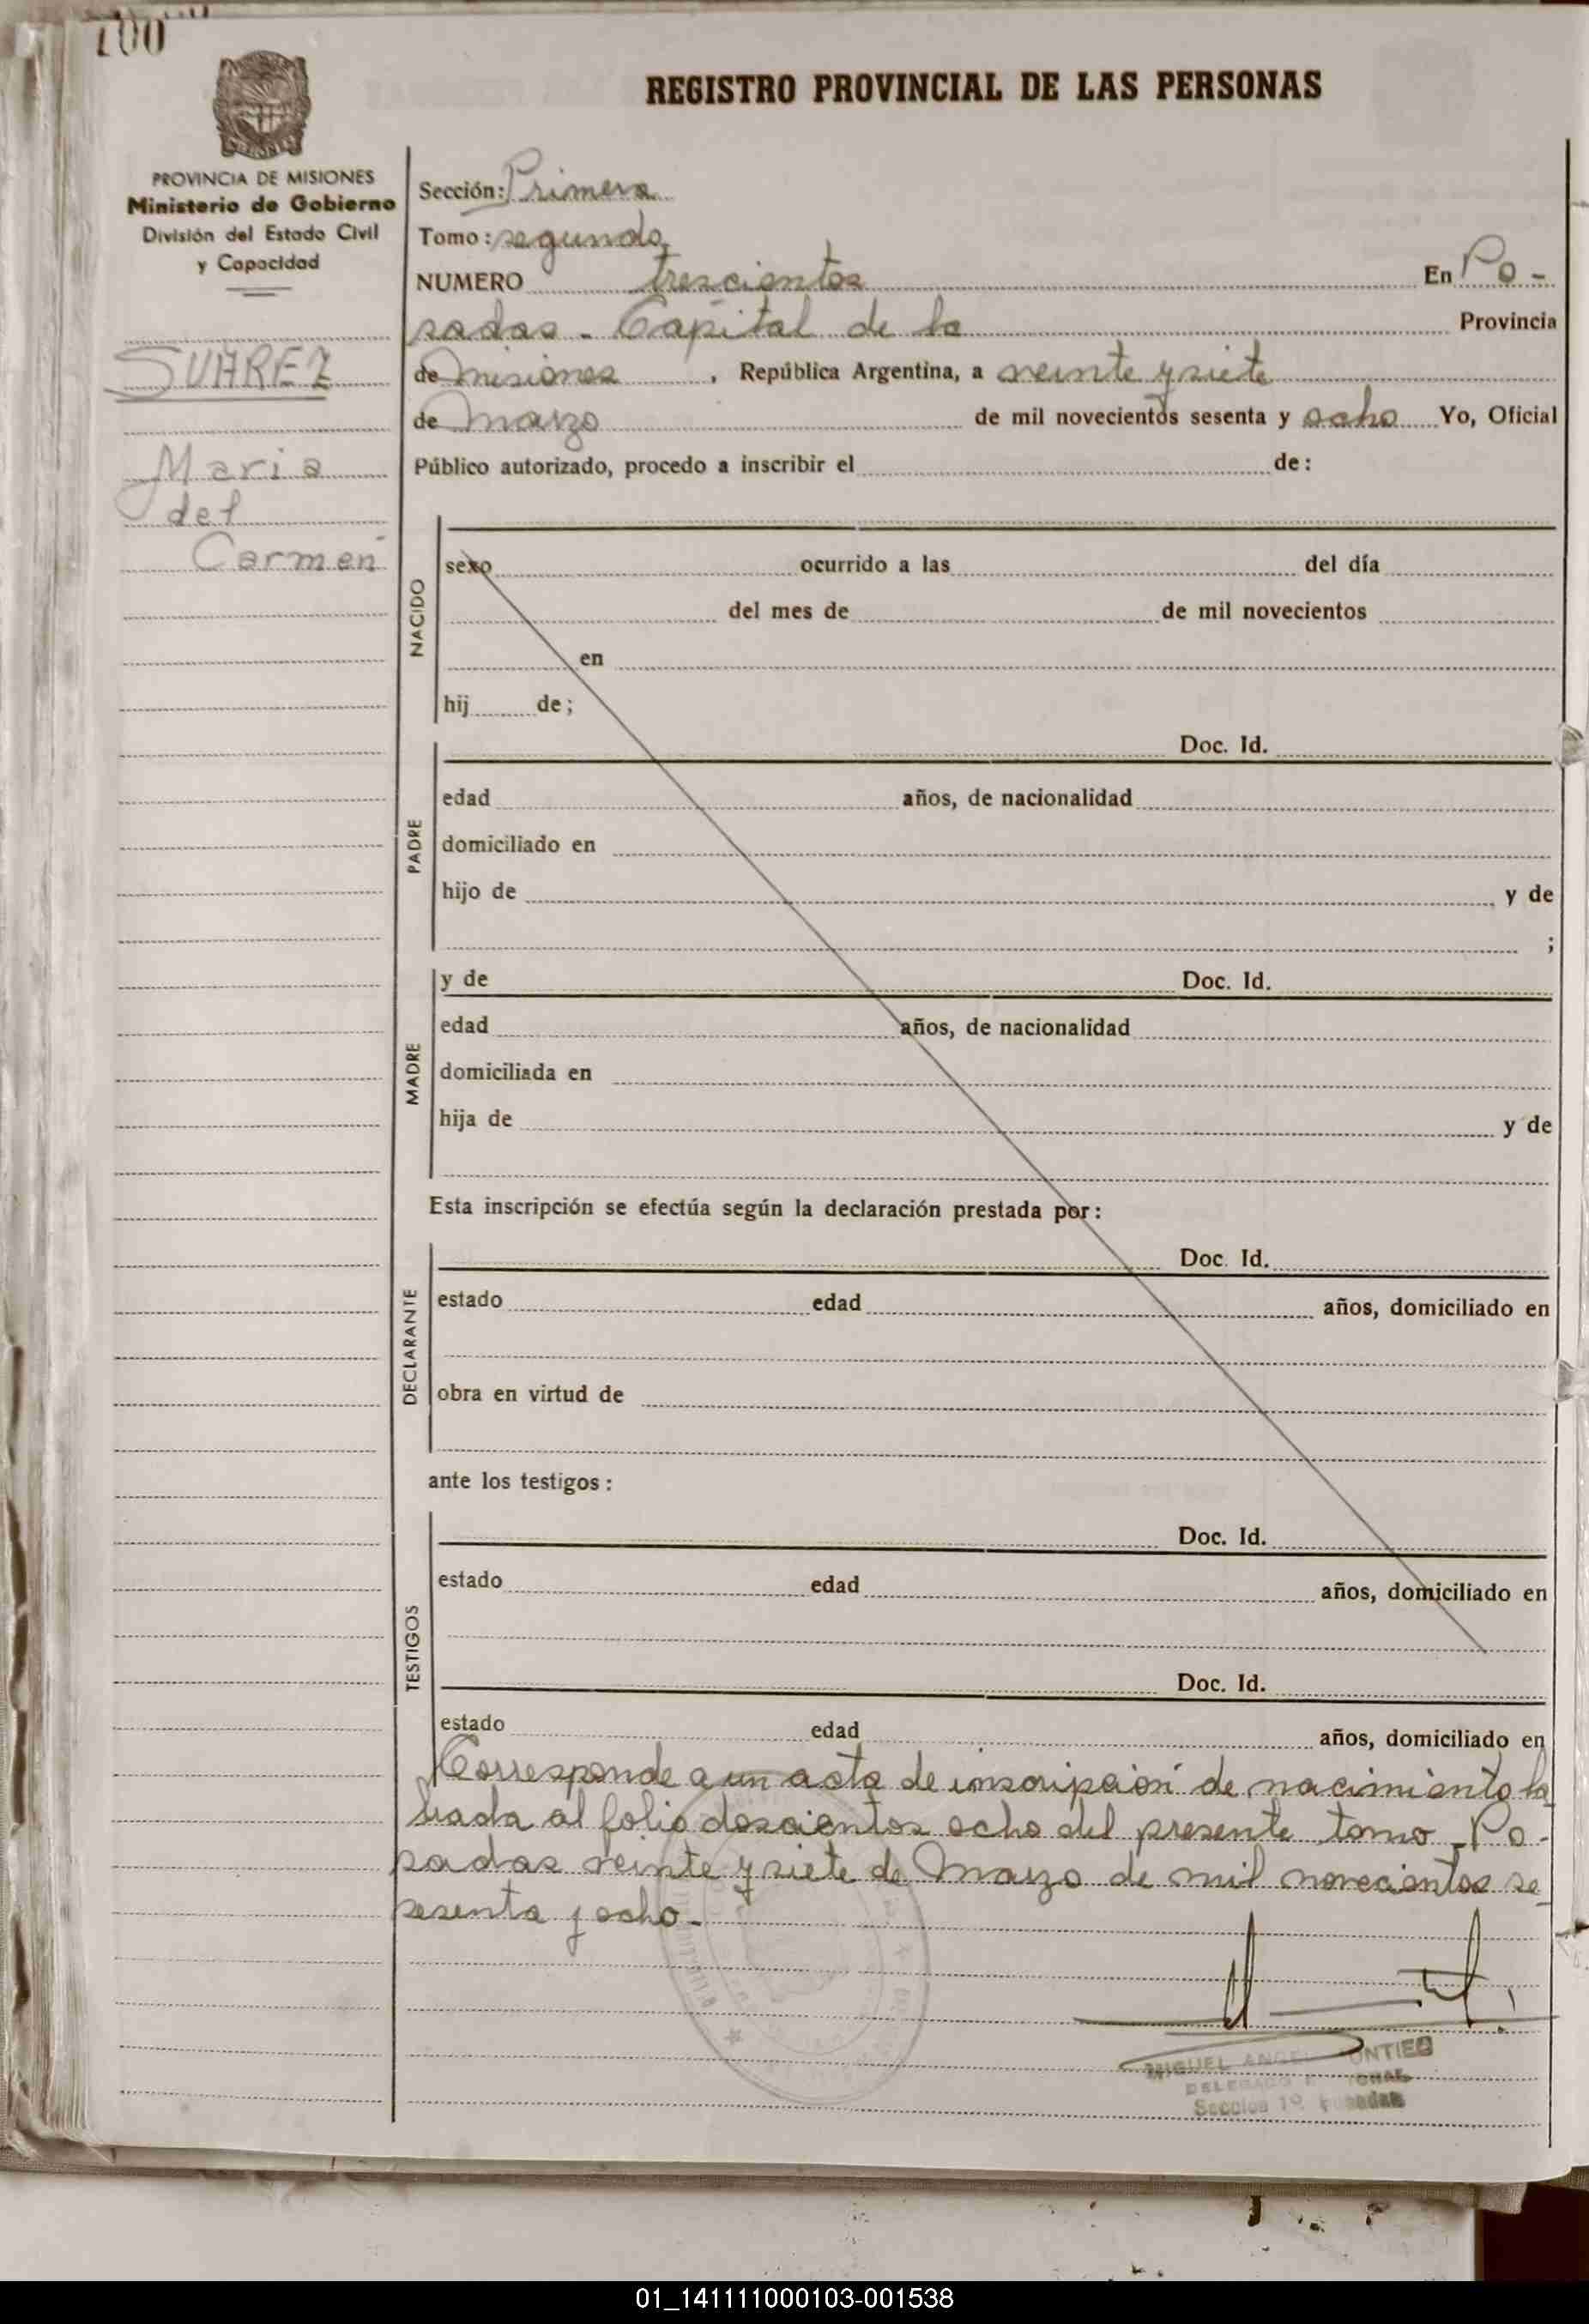 100
REGISTRO PROVINCIAL DE LAS PERSONAS
PROVINCIA DE MISIONES
Ministerio de Gobierno
División del Estado Civil
y Capacidad
SUAREZ
Maria
del
Carmen
Sección: Primera
Tomo: segundo
NUMERO trescientos En Po-
sadas - Capital de la Provincia
de misiones, República Argentina, a veinte y siete
de Marzo de mil novecientos sesenta y ocho Yo, Oficial
Público autorizado, procedo a inscribir el de:
NACIDO
sexo ocurrido a las del día
del mes de de mil novecientos
en
hij de;
PADRE
Doc. Id.
edad años, de nacionalidad
domiciliado en
hijo de y de
;
MADRE
y de Doc. Id.
edad años, de nacionalidad
domiciliada en
hija de y de
Esta inscripción se efectúa según la declaración prestada por:
DECLARANTE
Doc. Id.
estado edad años, domiciliado en
obra en virtud de
ante los testigos:
TESTIGOS
Doc. Id.
estado edad años, domiciliado en
Doc. Id.
estado edad años, domiciliado en
Corresponde a un acta de inscripción de nacimiento la
brada al folio doscientos ocho del presente tomo - Po-
sadas veinte y siete de Marzo de mil novecientos se
sesenta y ocho-
MIGUEL ANGEL
Seccion 1º Posadas
01_141111000103-001538